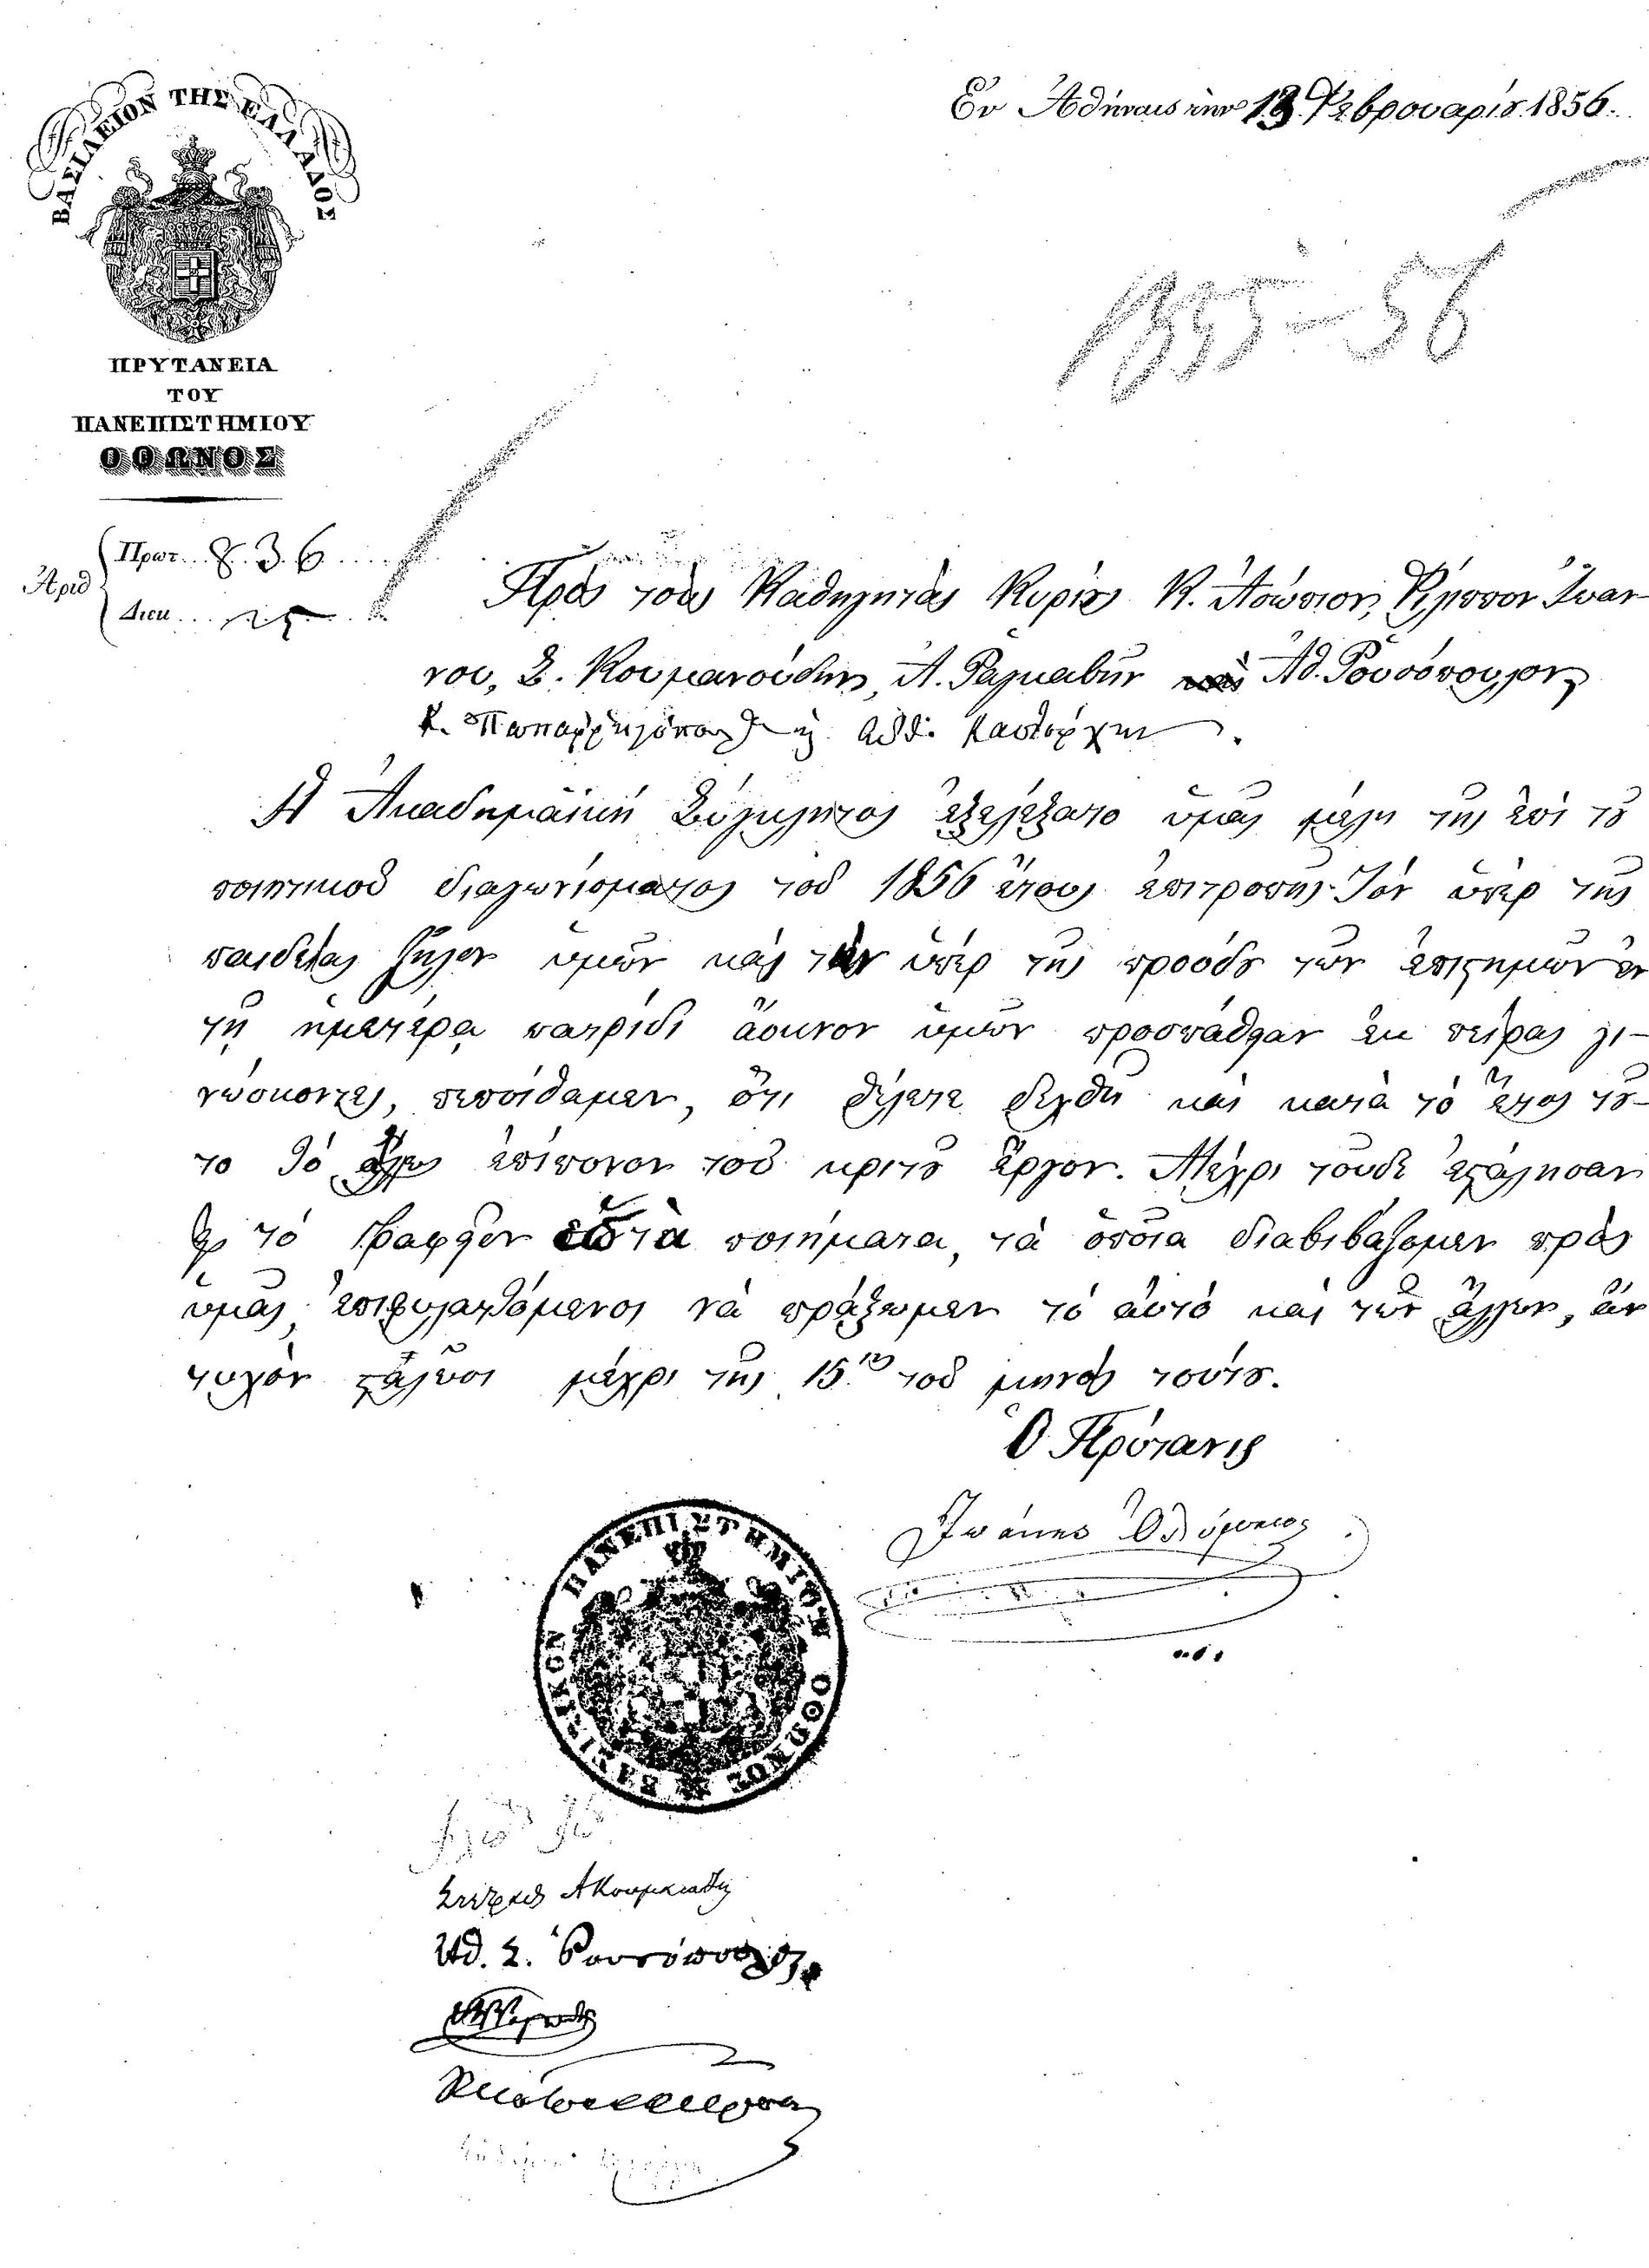 Ἐν Ἀθήναις τὴν 13 Φεβρουαρίȣ 1856.
ΒΑΣΙΛΕΙΟΝ ΤΗΣ ΕΛΛΑΔΟΣ
1855-56
ΠΡΥΤΑΝΕΙΑ
ΤΟΥ
ΠΑΝΕΠΙΣΤΗΜΙΟΥ
ΟΘΩΝΟΣ
Ἀριθ
Πρωτ. 836
Διεκ
Πρὸς τοὺς Καθηγητὰς Κυρίȣς Κ. Ἀσώπιον, Φίλιππον Ἰωάν-
νου, Σ. Κουμανούδην, Α. Ραγκαβῆν καὶ Ἀθ. Ρουσόπουλον,
Κ. Παπαρρηγόπουλον Καστόρχην.
Ἡ Ἀκαδημαϊκὴ Σύγκλητος ἐξελέξατο ὑμᾶς μέλη τῆς ἐπὶ τȣ͂
ποιητικοῦ διαγωνίσματος τοῦ 1856 ἔτους ἐπιτροπῆς. Τὸν ὑπὲρ τῆς
παιδείας ζῆλον ὑμῶν καὶ τὴν ὑπὲρ τῆς προόδȣ τῶν ἐπιστημῶν ἐν
τῇ ἡμετέρᾳ πατρίδι ἄοκνον ὑμῶν προσπάθειαν ἐκ πείρας γι-
νώσκοντες, πεποίθαμεν, ὅτι θέλετε δεχθῆ καὶ κατὰ τὸ ἔτος τȣ͂-
το τὸ ἄλλως ἐπίπονον τοῦ κριτȣ͂ ἔργον. Μέχρι τοῦδε ἐστάλησαν
εἰς τὸ γραφεῖον ἑπτὰ ποιήματα, τὰ ὁποῖα διαβιβάζομεν πρὸς
ὑμᾶς, ἐπιφυλαττόμενοι νὰ πράξωμεν τὸ αὐτὸ καὶ τῶν ἄλλων, ἂν
τυχὸν σταλῶσι μέχρι τῆς 15ης τοῦ μηνὸς τούτȣ.
Ὁ Πρύτανις
Ἰωάννης Ὀλύμπιος
ΒΑΣΙΛΙΚΟΝ ΠΑΝΕΠΙΣΤΗΜΙΟΝ ΟΘΩΝΟΣ
Στέφανος Α Κουμανούδης
Ἀθ. Σ. Ῥουσόπουλος